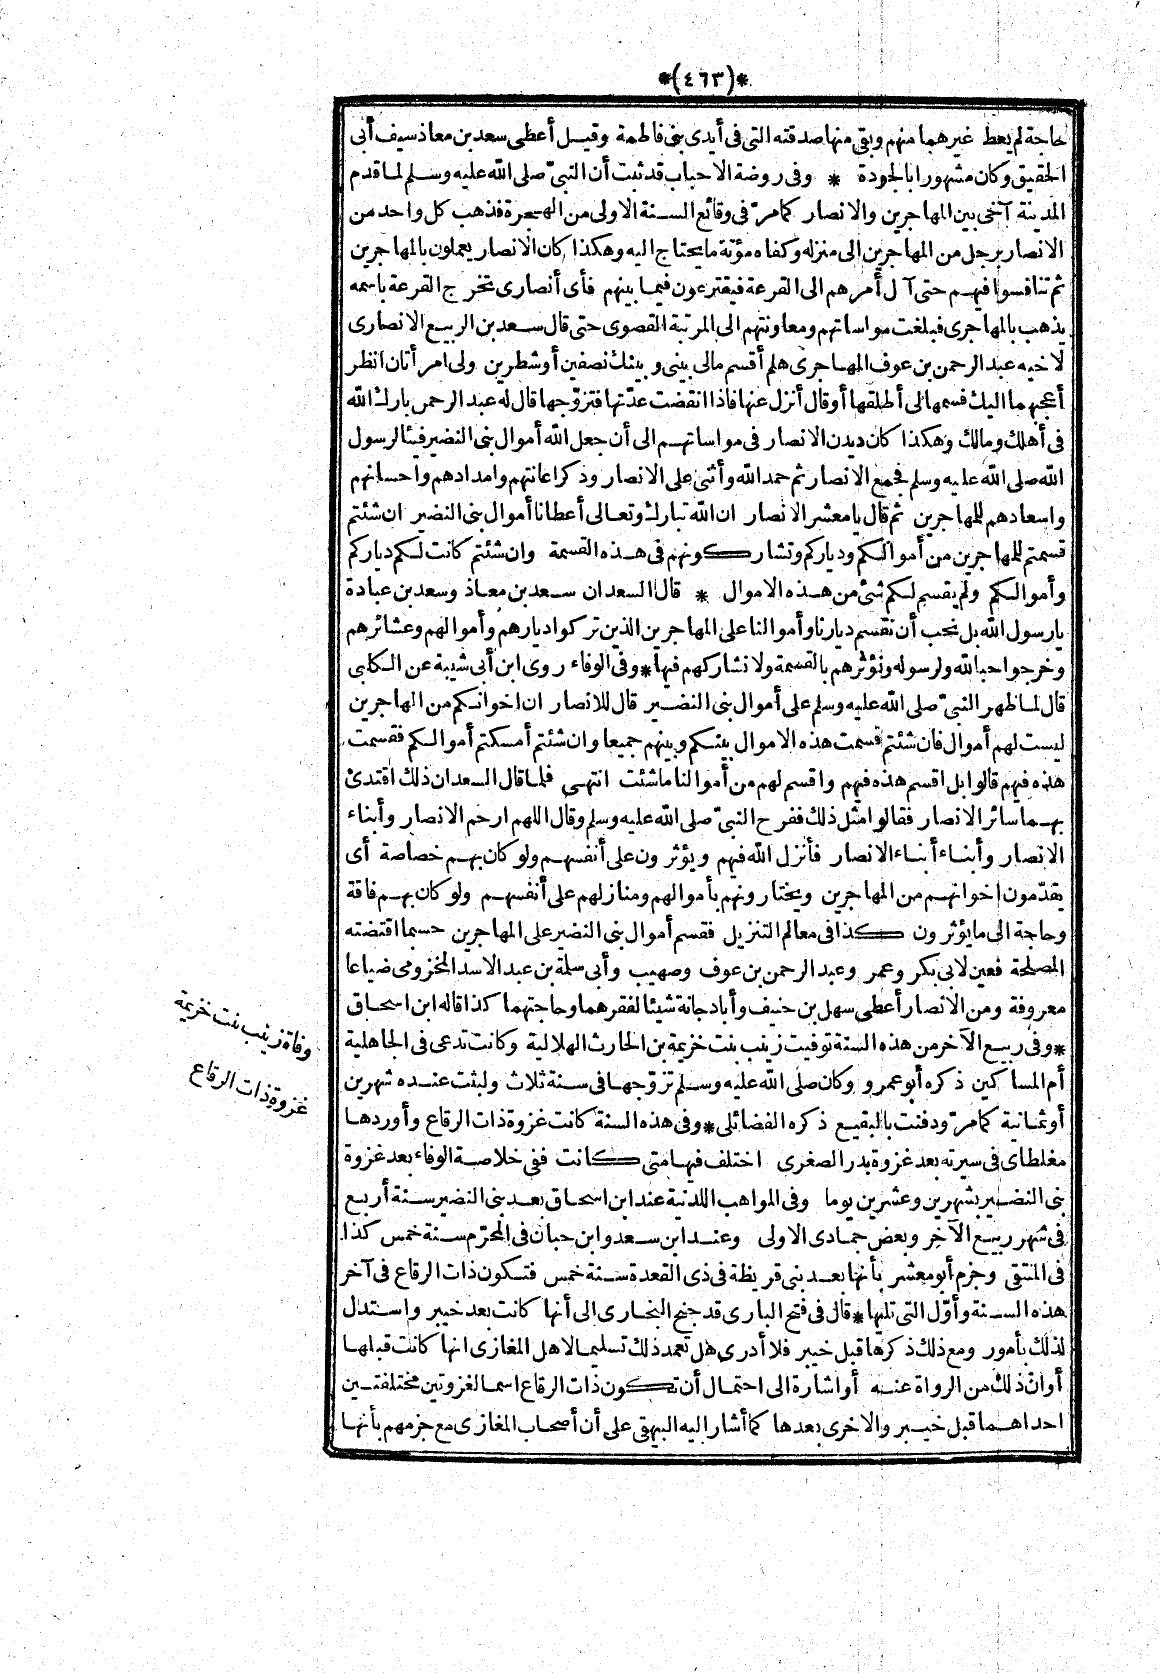 *(٤٦٣)*
حاجة لم يعط غيرهما منهم وبقى منها صدقته التى فى أيدى بنى فاطمة وقيل أعطى سعد بن معاذ سيف أبى
الحقيق وكان مشهورا بالجودة * وفى روضة الاحباب قد ثبت أن النبىّ صلى الله عليه وسلم لما قدم
المدينة آخى بين المهاجرين والانصار كما مرّ فى وقائع السنة الاولى من الهجرة فذهب كل واحد من
الانصار برجل من المهاجرين الى منزله وكفاه مؤنة ما يحتاج اليه وهكذا كان الانصار يعملون بالمهاجرين
ثم تنافسوا فيهم حتى آل أمرهم الى القرعة فيقترعون فيما بينهم فأى أنصارى تخرج القرعة باسمه
يذهب بالمهاجرى فبلغت مواساتهم ومعاونتهم الى المرتبة القصوى حتى قال سعد بن الربيع الانصارى
لاخيه عبد الرحمن بن عوف المهاجرى هلم أقسم مالى بينى وبينك نصفين أو شطرين ولى امرأتان انظر
أعجبهما اليك فسمها لى أطلقها أو قال أنزل عنها فاذا انقضت عدّتها فتزوّجها قال له عبد الرحمن بارك الله
فى أهلك ومالك وهكذا كان ديدن الانصار فى مواساتهم الى أن جعل الله أموال بنى النضير فيئا لرسول
الله صلى الله عليه وسلم فجمع الانصار ثم حمد الله وأثنى على الانصار وذكر اعانتهم وامدادهم واحسانهم
واسعادهم للمهاجرين ثم قال يا معشر الانصار ان الله تبارك وتعالى أعطانا أموال بنى النضير ان شئتم
قسمتم للمهاجرين من أموالكم ودياركم وتشاركونهم فى هذه القسمة وان شئتم كانت لكم دياركم
وأموالكم ولم يقسم لكم شئ من هذه الاموال * قال السعدان سعد بن معاذ وسعد بن عبادة
يا رسول الله بل نحب أن تقسم ديارنا وأموالنا على المهاجرين الذين تركوا ديارهم وأموالهم وعشائرهم
وخرجوا حبا لله ولرسوله ونؤثرهم بالقسمة ولا نشاركهم فيها * وفى الوفاء روى ابن أبى شيبة عن الكلبى
قال لما ظهر النبىّ صلى الله عليه وسلم على أموال بنى النضير قال للانصار ان اخوانكم من المهاجرين
ليست لهم أموال فان شئتم قسمت هذه الاموال بينكم وبينهم جميعا وان شئتم أمسكتم أموالكم فقسمت
هذه فيهم قالوا بل اقسم هذه فيهم واقسم لهم من أموالنا ما شئت انتهى فلما قال السعدان ذلك اقتدى
بهما سائر الانصار فقالوا مثل ذلك ففرح النبىّ صلى الله عليه وسلم وقال اللهم ارحم الانصار وأبناء
الانصار وأبناء أبناء الانصار فأنزل الله فيهم ويؤثرون على أنفسهم ولو كان بهم خصاصة أى
يقدّمون اخوانهم من المهاجرين ويختارونهم بأموالهم ومنازلهم على أنفسهم ولو كان بهم فاقة
وحاجة الى ما يؤثرون كذا فى معالم التنزيل فقسم أموال بنى النضير على المهاجرين حسبما اقتضته
المصلحة فعين لابى بكر وعمر وعبد الرحمن بن عوف وصهيب وأبى سلمة بن عبد الاسد المخزومى ضياعا
معروفة ومن الانصار أعطى سهل بن حنيف وأبا دجانة شيئا لفقرهما وحاجتهما كذا قاله ابن اسحاق
* وفى ربيع الآخر من هذه السنة توفيت زينب بنت خزيمة بن الحارث الهلالية وكانت تدعى فى الجاهلية
أم المساكين ذكره أبو عمرو وكان صلى الله عليه وسلم تزوّجها فى سنة ثلاث ولبثت عنده شهرين
أو ثمانية كما مرّ ودفنت بالبقيع ذكره الفضائلى * وفى هذه السنة كانت غزوة ذات الرقاع وأوردها
مغلطاى فى سيرته بعد غزوة بدر الصغرى اختلف فيها متى كانت ففى خلاصة الوفاء بعد غزوة
بنى النضير بشهرين وعشرين يوما وفى المواهب اللدنية عند ابن اسحاق بعد بنى النضير سنة أربع
فى شهر ربيع الآخر وبعض جمادى الاولى وعند ابن سعد وابن حبان فى المحرّم سنة خمس كذا
فى المنتقى وجزم أبو معشر بأنها بعد بنى قريظة فى ذى القعدة سنة خمس فتكون ذات الرقاع فى آخر
هذه السنة وأوّل التى تليها * قال فى فتح البارى قد جنح البخارى الى أنها كانت بعد خيبر واستدل
لذلك بأمور ومع ذلك ذكرها قبل خيبر فلا أدرى هل تعمد ذلك تسليما لاهل المغازى انها كانت قبلها
أو انّ ذلك من الرواة عنه أو اشارة الى احتمال أن تكون ذات الرقاع اسما لغزوتين مختلفتين
احداهما قبل خيبر والاخرى بعدها كما أشار اليه البيهقى على أن أصحاب المغازى مع جزمهم بأنها
وفاة زينب بنت خزيمة
غزوة ذات الرقاع